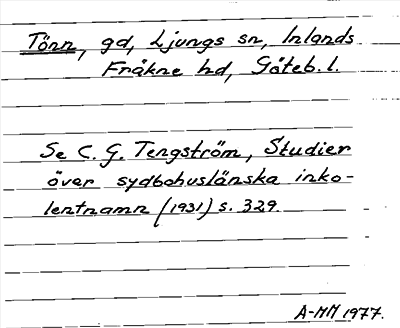 Tönn, gd, Ljungs sn, Inlands
Fräkne hd, Göteb. l.
Se C. G. Tengström, Studier
över sydbohuslänska inko-
lentnamn (1931) s. 329.
A-MM 1977.